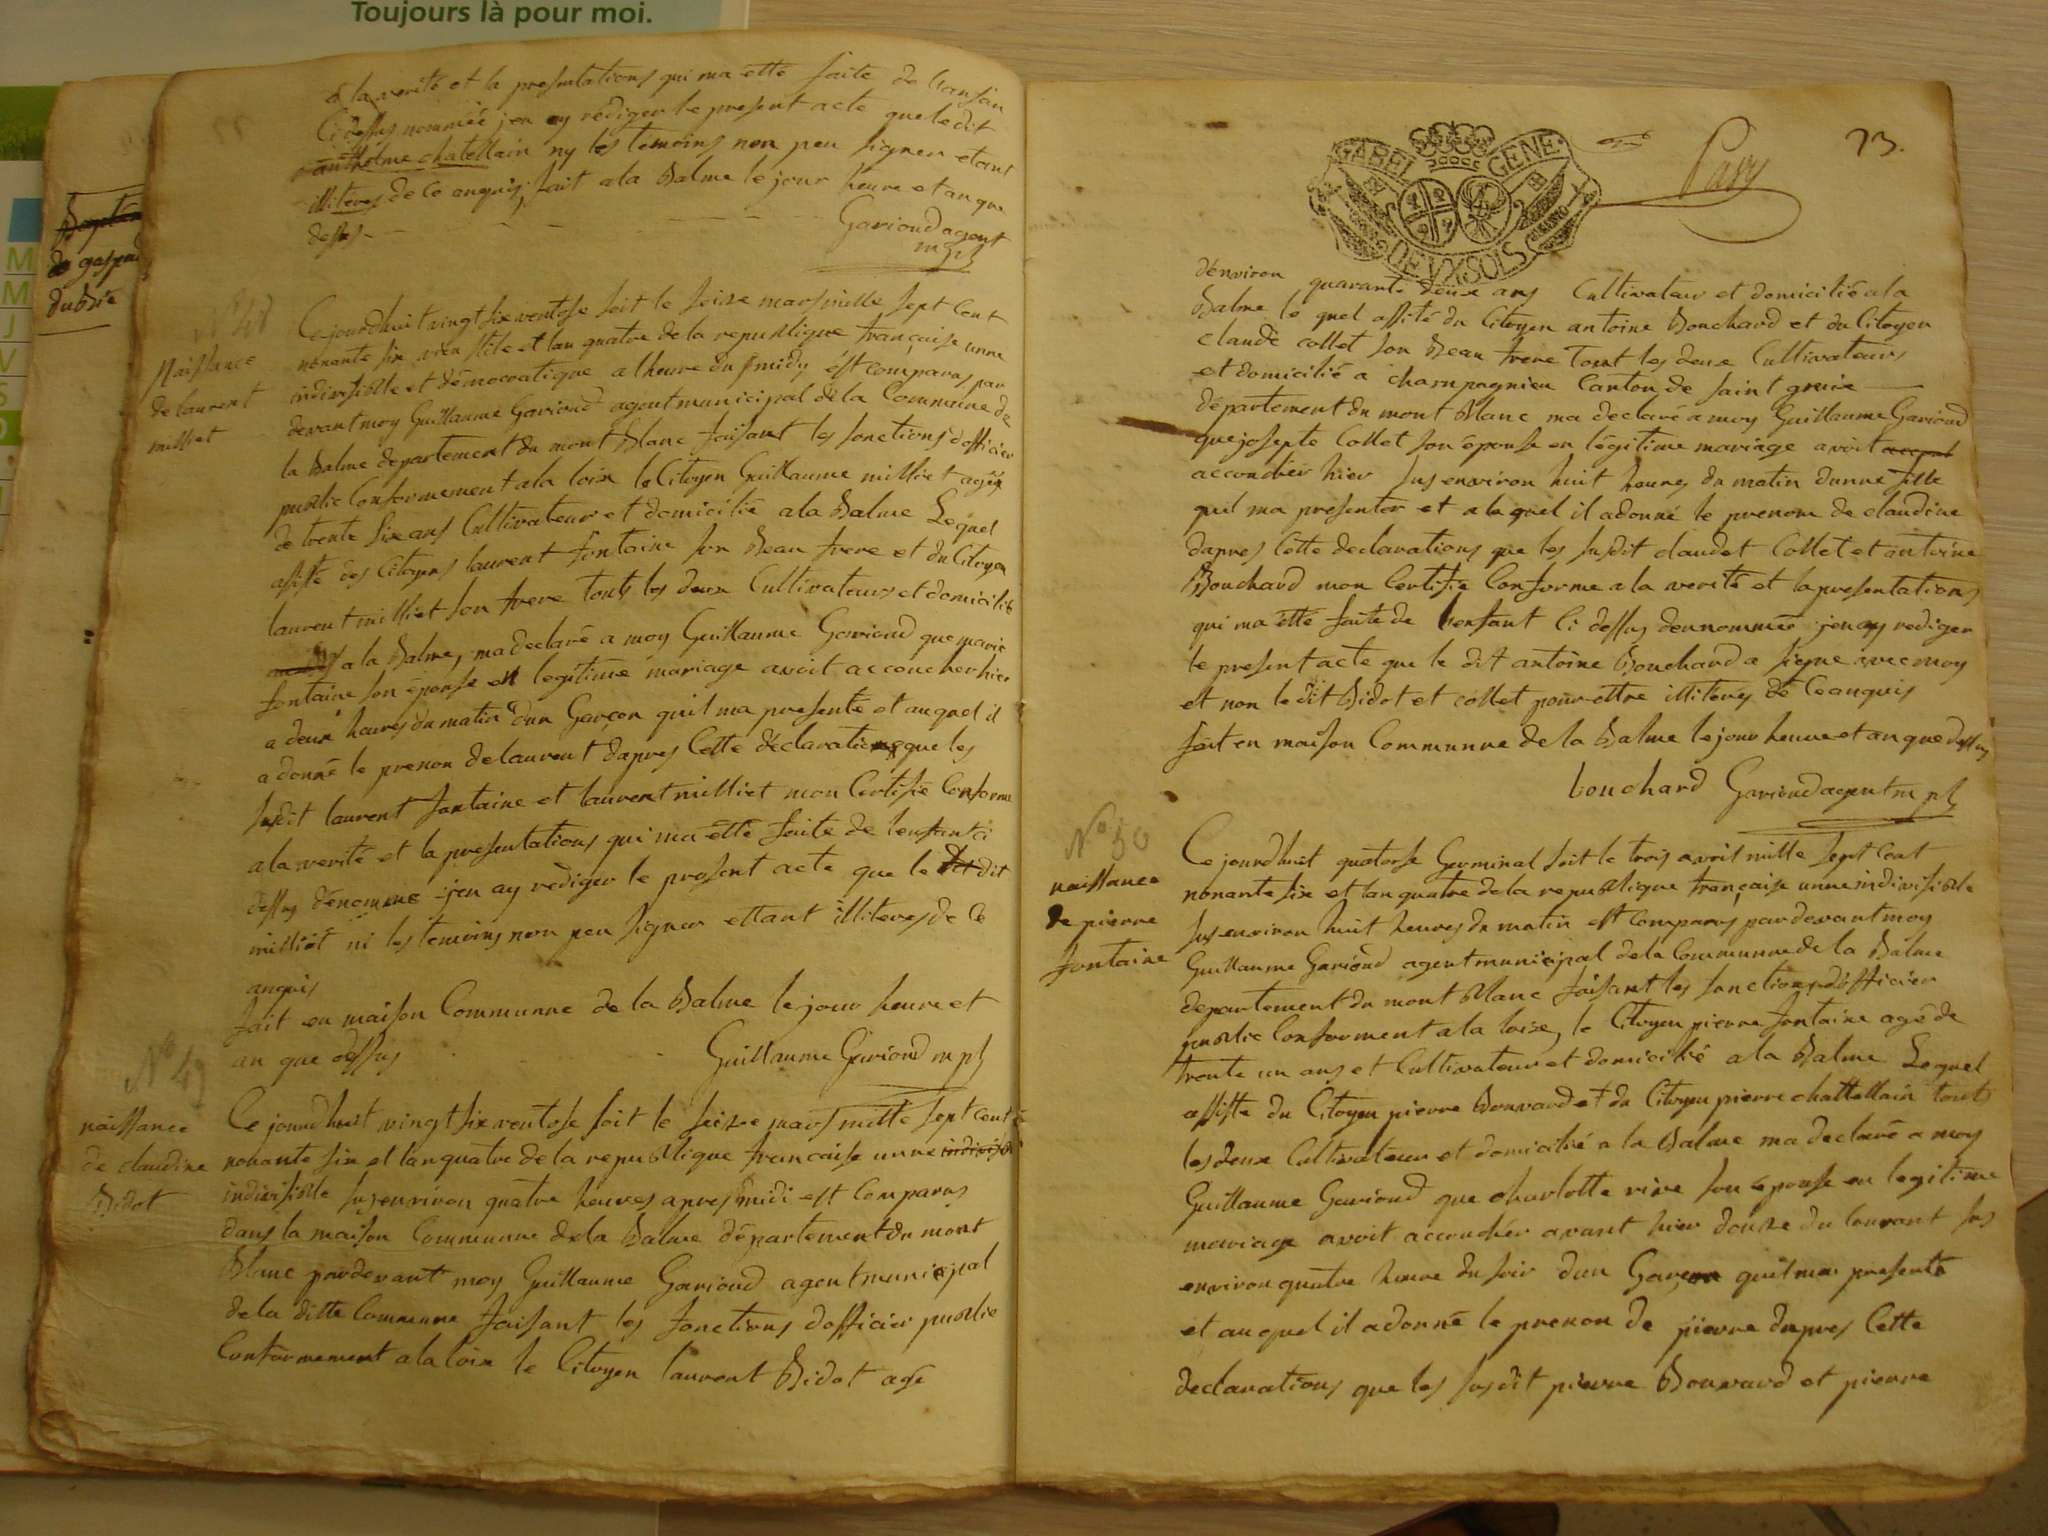 Toujours là pour moi.
de gaspard
dubrie
M
M
J
V
S
D
à la verité et la presentations qui ma etté faite de lansan
Ci dessus nommée jen ay rédiger le present acte que le dit
anthelme chatellain ny les temoins non peu signer etans
illiteres de ce anquis, fait a la Balme le jour heure et an que
dessus
Gariond agent
m pl
N° 48
Naissance
de laurent
milliet
Cejourdhuit vingt six ventose soit le seize mars mille sept cent
nonante six vieu stile et lan quatre de la republique française unne
indivisible et démocratique a lheure du midy est comparus par
devant moy Guillaume Gariond agent municipal de la Commune de
la Balme departement du mont Blanc faisant les fonctions dofficier
public Conformement a la loix le Citoyen Guillaume milliet agée
de trente six ans Cultivateur et domicilié a la Balme Lequel
assiste des Citoyens laurent fontaine son Beau frere et du Citoyen
laurent milliet son frere touts les deux Cultivateurs et domicilié
a la Balme, ma declaré a moy Guillaume Gariond que marie
fontaine son épouse en legitime mariage avoit accoucher hier
a deux heures du matin dun Garçon quil ma presenté et auquel il
a donné le prenon de laurent dapres Cette déclarations que les
susdit laurent fontaine et laurent milliet mon Certifié Conforme
a la verité et la presentations qui ma etté faite de lenfant ci
dessus dénommé jen ay rediger le present acte que le dit
milliet ni les temoins non peu signer ettant illiteres de ce
anquis
fait en maison Communne de la Balme le jour heure et
an que dessus
Guillaume Gariond m pl
N° 49
naissance
de claudine
Bidot
Ce jourdhuit vingt six ventose soit le seize mars mille sept cent
nonante six et lan quatre de la republique francaise unne indivisible
indivisible sus environ quatre heures apres midi est Comparus
dans la maison Communne de la Balme département du mont
Blanc pardevant moy Guillaume Gariond agent municipal
de la ditte Commune faisant les fonctions dofficier public
Conformement a la loix le Citoyen laurent Bidot agé
GABEL GENE.
DEUX SOLS
Pavy
73.
dénviron quarante deux ans Cultivateur et domicilié a la
Balme le quel assité du Citoyen antoine Bouchard et du Citoyen
claude collet son Beau frere Tout les deux Cultivateurs
et domicilié a champagnieu Canton de saint genix
département du mont Blanc ma declaré a moy Guillaume Gariond
que josepte Collet son épouse en légitime mariage avoit
accouchér hier sus environ huit heures du matin dunne fille
quil ma presenter et a la quel il a donné le prenom de claudine
dapres Cette declarations que les susdit claudet Collet et antoine
Bouchard mon Certifié Conforme a la verité et la presentations
qui ma étté faite de lenfant Ci dessus dennommée jen ay rediger
le present acte que le dit antoine Bouchard a signe avec moy
et non le dit Bidot et collet pour ettre illiteres de Ce anquis
fait en maison Communne de la Balme le jour heure et an que dessus
bouchard Gariond agent m pl
N° 50
naissance
de pierre
fontaine
Ce jourdhuit quatorse Germinal soit le trois avril mille sept Cent
nonante six et lan quatre de la republique française unne indivisible
sus environ huit heures du matin est Comparus pardevant moy
Guillaume Gariond agent municipal de la Communne de la Balme
departement du mont Blanc faisant les fonctions dofficier
public Conforment a la loix, le Citoyen pierre fontaine agé de
trente un ans et Cultivateur et domicilié a la Balme Lequel
assiste du Citoyen pierre Bouvard et du Citoyen pierre chattellain touts
les deux Cultivateur et domicilié a la Balme ma declaré a moy
Guillaume Gariond que charlotte rive son épouse en legitime
mariage avoit accouchér avant hier douze du Courant sus
environ quatre heure du soir dun Garçon quil ma presenté
et auquel il a donné le prenon de pierre dapres Cette
declarations que les susdit pierre Bouvard et pierre